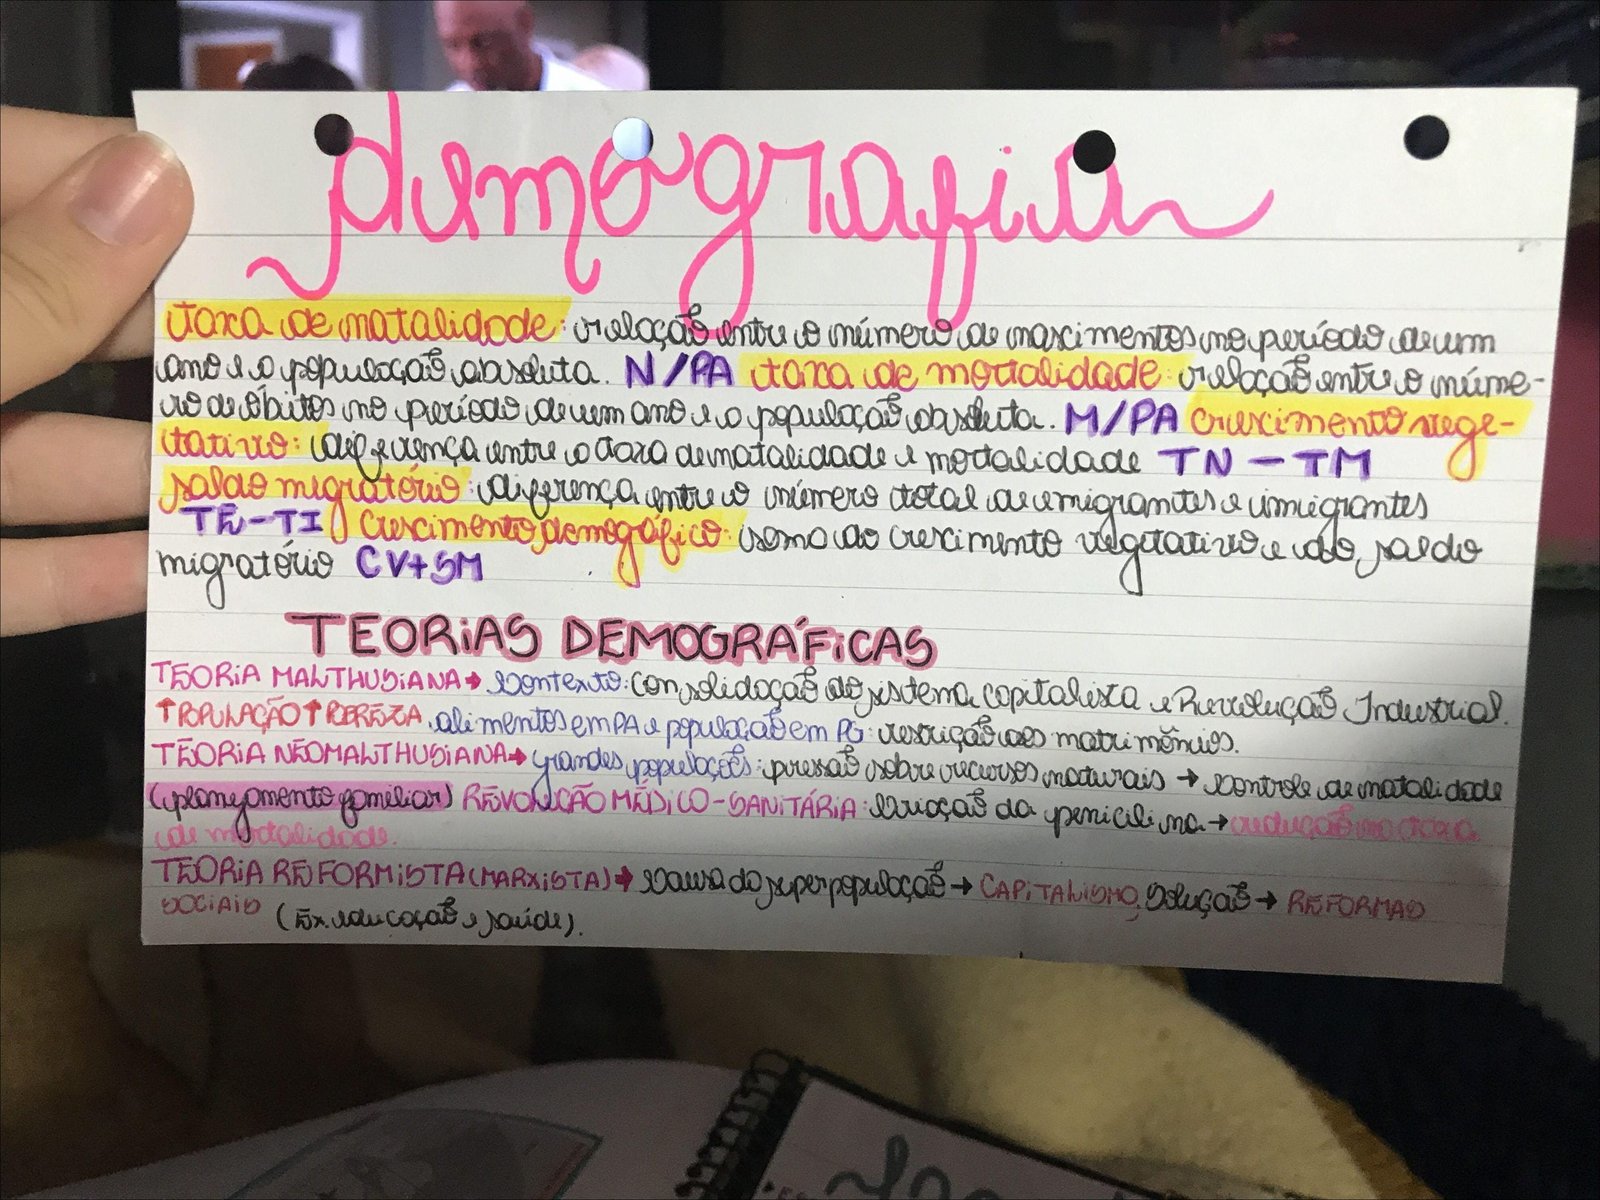 demografia
taxa de natalidade: relação entre o número de nascimentos no período de um
ano e a população absoluta. N/PA taxa de mortalidade: relação entre o núme-
ro de óbitos no período de um ano e a população absoluta. M/PA crescimento vege-
tativo: diferença entre a taxa de natalidade e mortalidade TN - TM
saldo migratório: diferença entre o número total de emigrantes e imigrantes
TE-TI crescimento demográfico: soma do crescimento vegetativo e do saldo
migratório CV+SM
TEORIAS DEMOGRÁFICAS
TEORIA MALTHUSIANA → contexto: consolidação do sistema capitalista e Revolução Industrial.
↑POPULAÇÃO ↑POBREZA. alimentos em PA e população em PG: restrição aos matrimônios.
TEORIA NEOMALTHUSIANA → grandes populações: pressão sobre recursos naturais → controle de natalidade
(planejamento familiar) REVOLUÇÃO MÉDICO-SANITÁRIA: criação da penicilina → redução na taxa
de mortalidade.
TEORIA REFORMISTA (MARXISTA) → causa da superpopulação → CAPITALISMO. Solução → REFORMAS
SOCIAIS (Ex. educação e saúde).